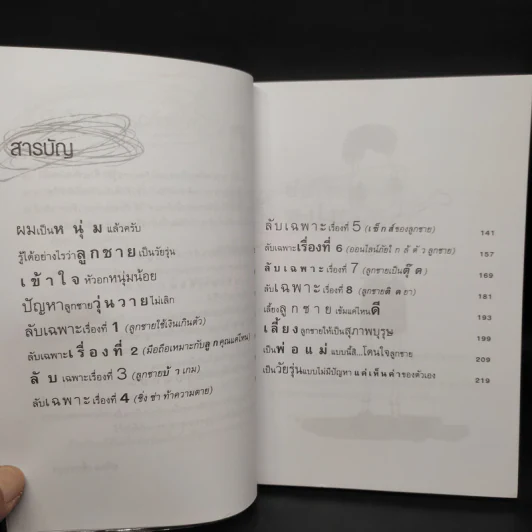 สารบัญ
ผมเป็นหนุ่มแล้วครับ
รู้ได้อย่างไรว่าลูกชายเป็นวัยรุ่น
เข้าใจหัวอกหนุ่มน้อย
ปัญหาลูกชายวุ่นวายไม่เลิก
ลับเฉพาะเรื่องที่ 1 (ลูกชายใช้เงินเกินตัว)
ลับเฉพาะเรื่องที่ 2 (มือถือเหมาะกับลูกคุณแค่ไหน)
ลับเฉพาะเรื่องที่ 3 (ลูกชายบ้าเกม)
ลับเฉพาะเรื่องที่ 4 (ซิ่ง ซ่า ท้าความตาย)
ลับเฉพาะเรื่องที่ 5 (เซ็กส์ของลูกชาย) 141
ลับเฉพาะเรื่องที่ 6 (ออนไลน์ภัยใกล้ตัวลูกชาย) 157
ลับเฉพาะเรื่องที่ 7 (ลูกชายเป็นตุ๊ด) 169
ลับเฉพาะเรื่องที่ 8 (ลูกชายติดยา) 181
เลี้ยงลูกชายเข้มแค่ไหนดี 193
เลี้ยงลูกชายให้เป็นสุภาพบุรุษ 199
เป็นพ่อแม่แบบนี้สิ...โดนใจลูกชาย 209
เป็นวัยรุ่นแบบไม่มีปัญหา แค่เห็นค่าของตัวเอง 219